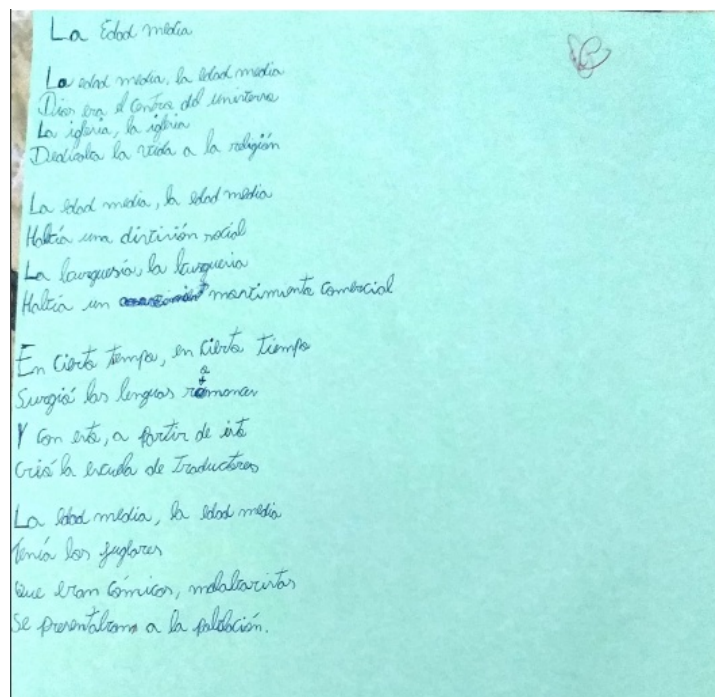 La Edad media
La edad media, la edad media
Dios era el centro del universo
La iglesia, la iglesia
Dedicaba la vida a la religión
La edad media, la edad media
Había una distinción social
La burguesía, la burguesia
Había un movimiento comercial
En cierto tempo, en cierto tiempo
Surgió las lenguas romances
Y con esto, a partir de esto
Crió la escuela de Traductores
La edad media, la edad media
Tenía los juglares
Que eran cómicos, malabaristas
Se presentaban a la población.